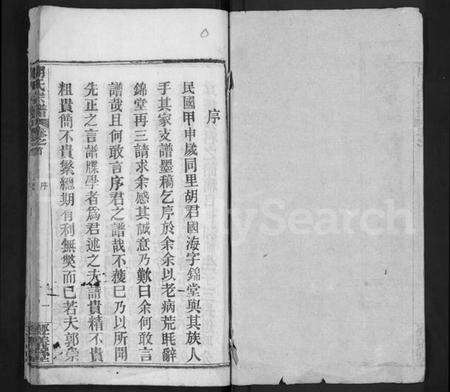 序
民國甲申歲同里胡君國海字錦堂與其族人
手其家支譜墨稿乞序於余余以老病荒耗辭
錦堂再三請求余感其誠意乃歎曰余何敢言
譜哉且何敢言序君之譜哉不獲已乃以所聞
先正之言譜牒學者為君述之夫譜貴精不貴
粗貴簡不貴繁總期有利無獘而已若夫郭崇
胡氏
序
MySearch